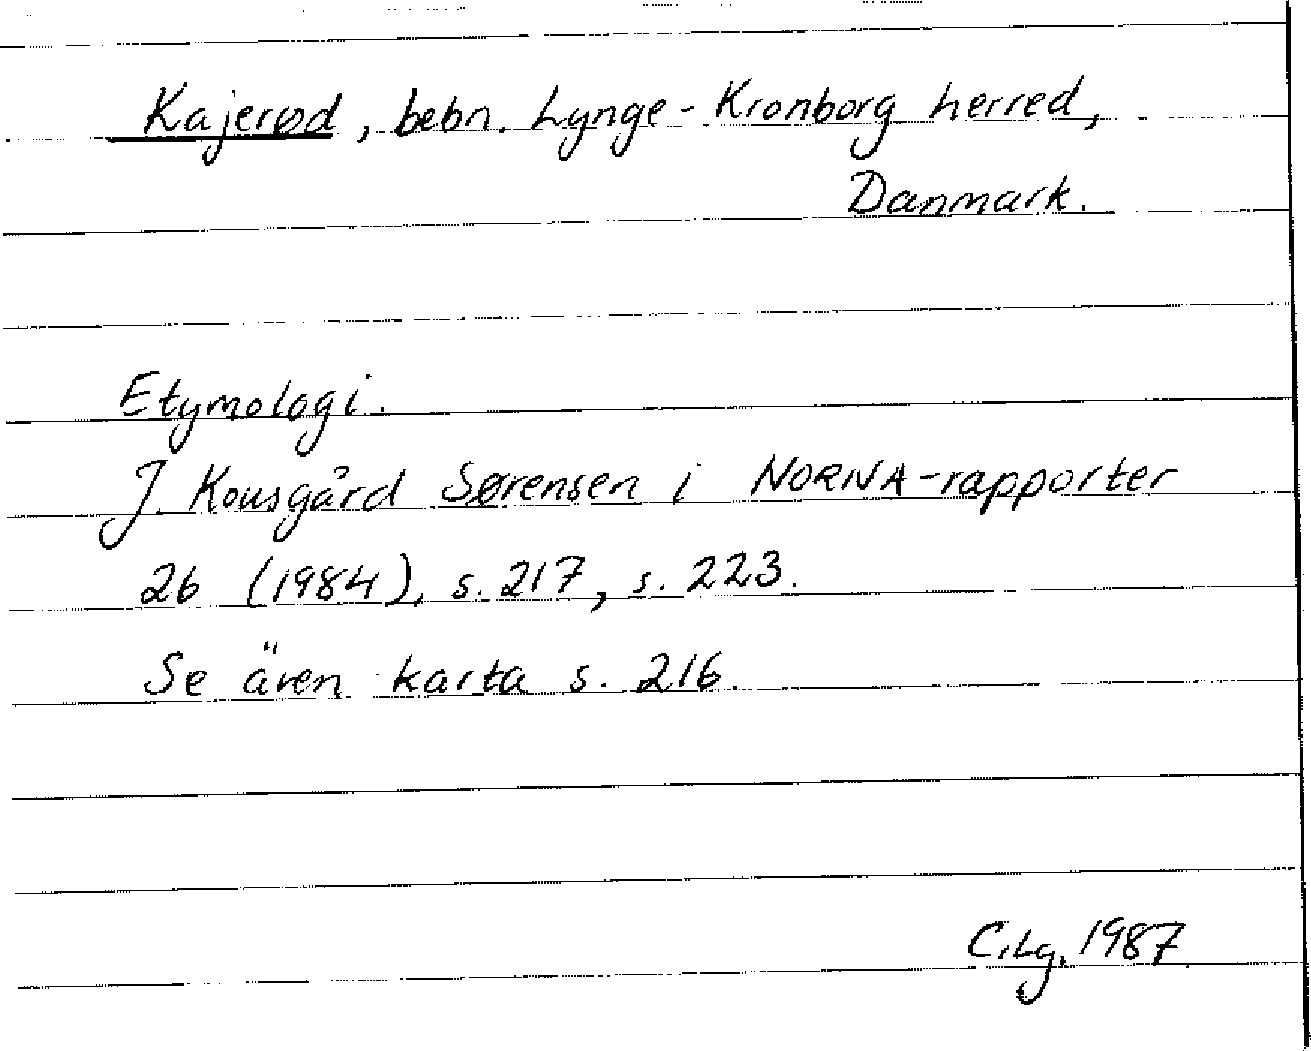 Kajerød, bebn. Lynge-Kronborg herred,
Danmark.
Etymologi.
J. Kousgård Sørensen i NORNA-rapporter
26 (1984), s. 217, s. 223.
Se även karta s. 216.
C.Lg. 1987